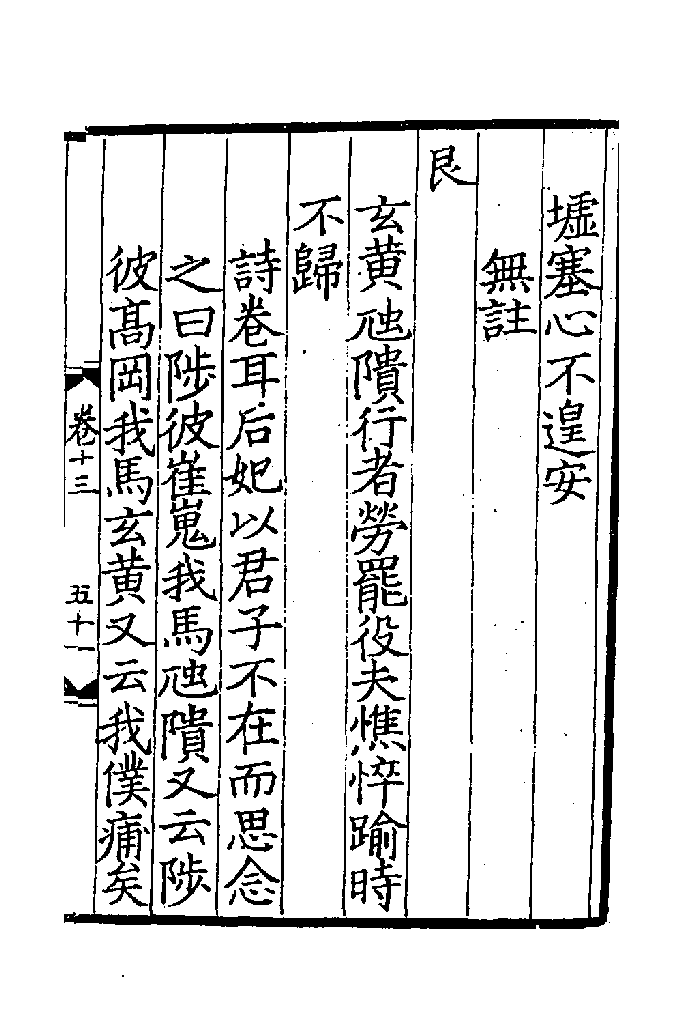 墟塞心不遑安
無註
艮
玄黄虺隤行者勞罷役夫憔悴踰時
不歸
詩卷耳后妃以君子不在而思念
之曰陟彼崔嵬我馬虺隤又云陟
彼髙岡我馬玄黄又云我僕痡矣
卷十三
五十一